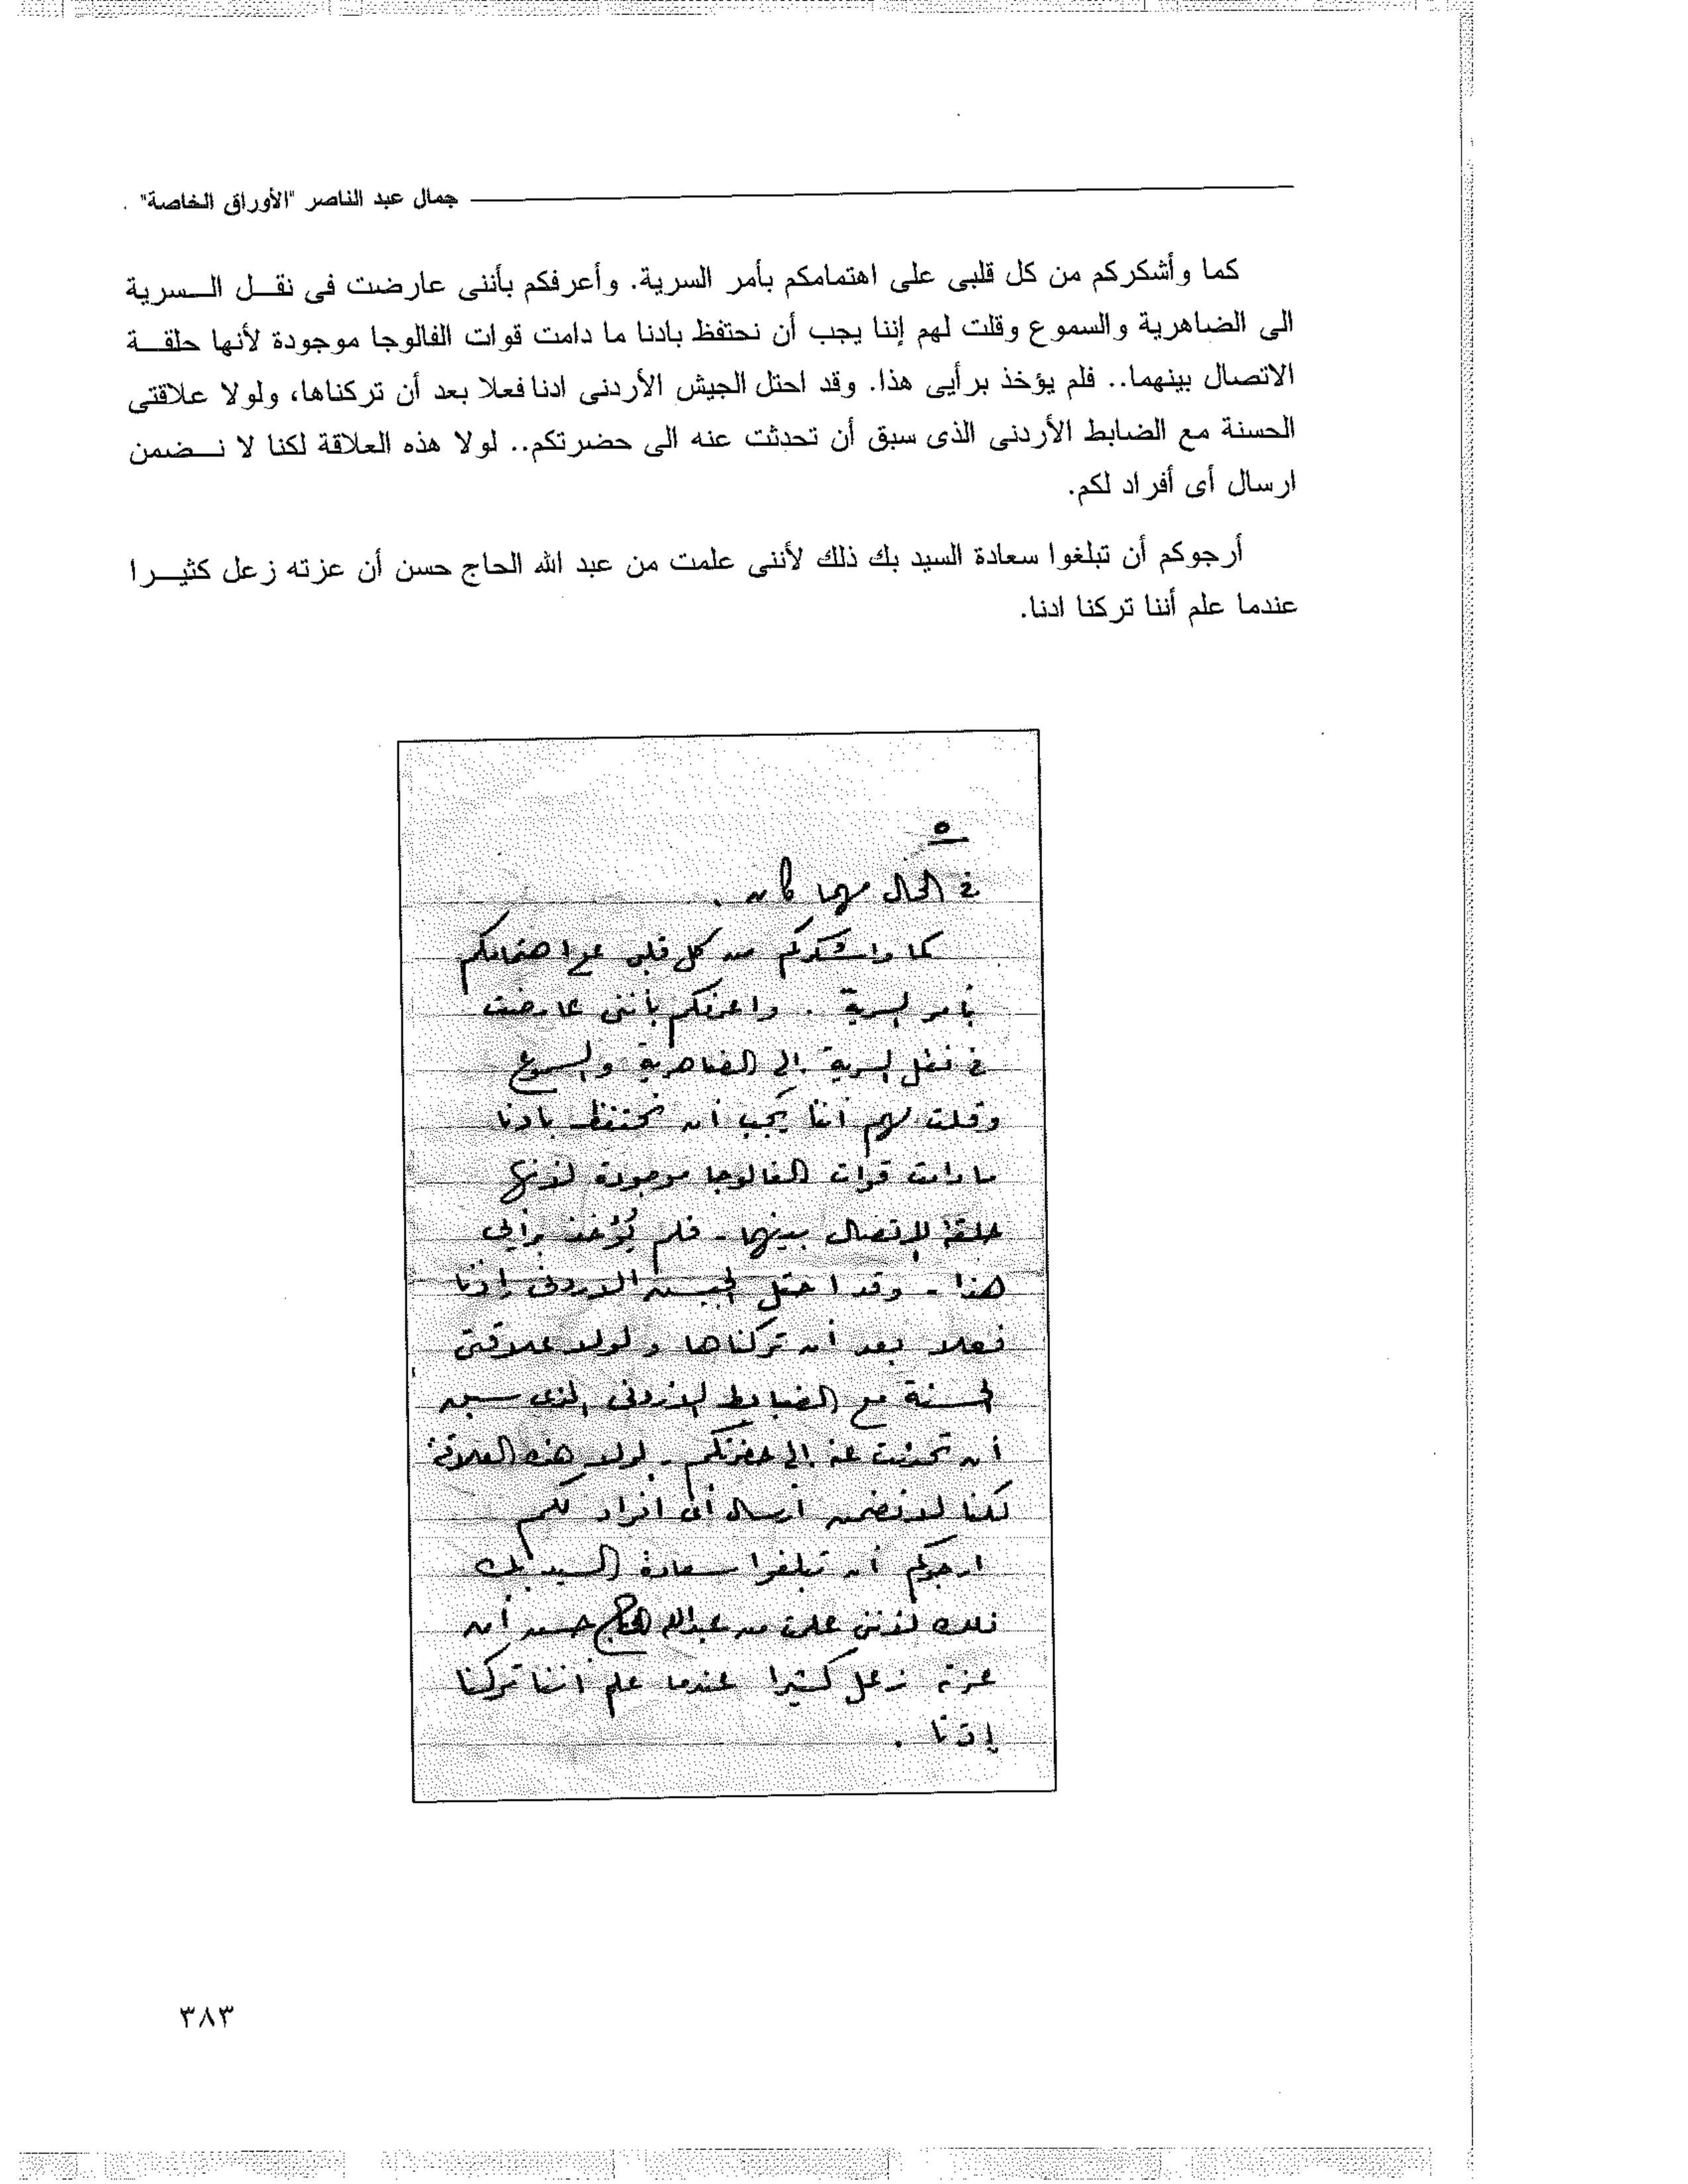 جمال عبد الناصر "الأوراق الخاصة"
كما وأشكركم من كل قلبى على اهتمامكم بأمر السرية. وأعرفكم بأننى عارضت فى نقل السرية
الى الضاهرية والسموع وقلت لهم إننا يجب أن نحتفظ بادنا ما دامت قوات الفالوجا موجودة لأنها حلقة
الاتصال بينهما.. فلم يؤخذ برأيى هذا. وقد احتل الجيش الأردنى ادنا فعلا بعد أن تركناها، ولولا علاقتى
الحسنة مع الضابط الأردنى الذى سبق أن تحدثت عنه الى حضرتكم.. لولا هذه العلاقة لكنا لا نضمن
ارسال أى أفراد لكم.
أرجوكم أن تبلغوا سعادة السيد بك ذلك لأننى علمت من عبد الله الحاج حسن أن عزته زعل كثيرا
عندما علم أننا تركنا ادنا.
٥
فى الحال مهما كان .
كما واشكركم من كل قلبى على اهتمامكم
بأمر السرية . واعرفكم بأننى عارضت
فى نقل السرية الى الضاهرية والسموع
وقلت لهم اننا يجب أن نحتفظ بادنا
ما دامت قوات الفالوجا موجودة لأنها
حلقة الاتصال بينهما - فلم يُؤخذ برأيى
هذا - وقد احتل الجيش الاردنى إدنا
فعلا بعد أن تركناها ولولا علاقتى
الحسنة مع الضابط الاردنى الذى سبق
أن تحدثت عنه الى حضرتكم - لولا هذه العلاقة
لكنا لا نضمن ارسال أى افراد لكم
ارجوكم أن تبلغوا سعادة السيد بك
ذلك لأننى علمت من عبد الله الحاج حسن أن
عزته زعل كثيرا عندما علم اننا تركنا
إدنا .
٣٨٣